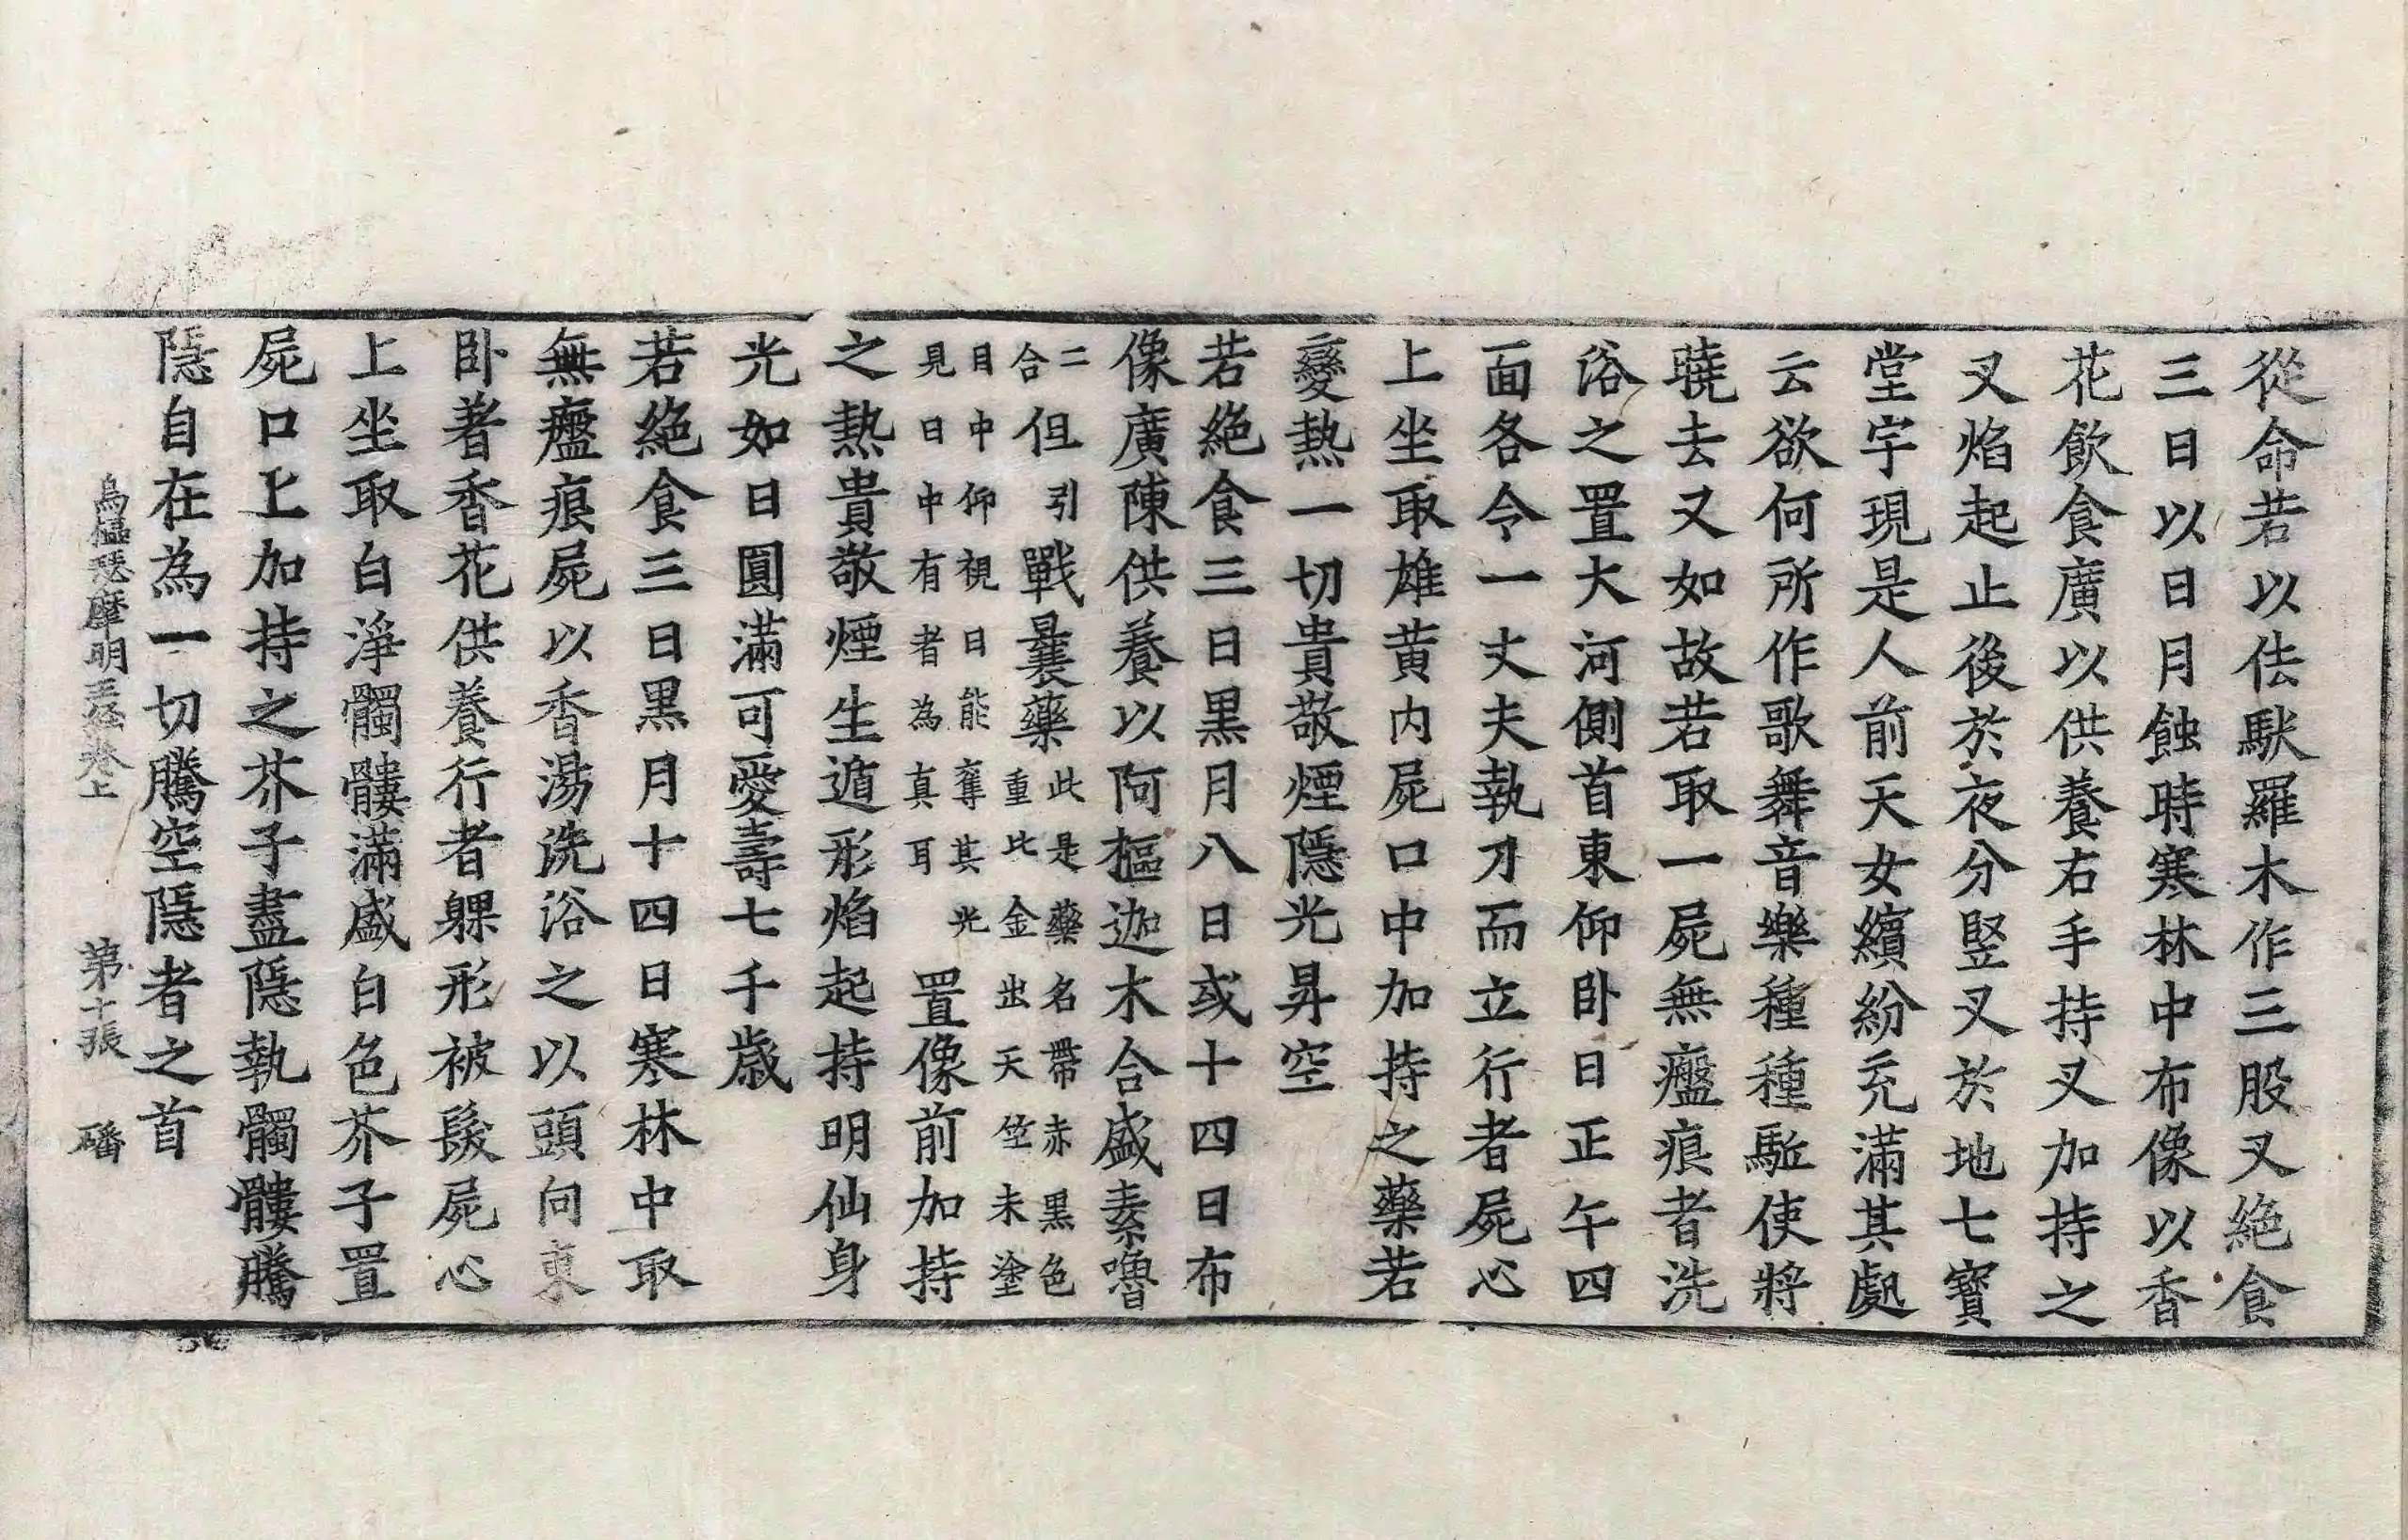 從命若以佉馱羅木作三股叉絶食
三日以日月蝕時寒林中布像以香
花飲食廣以供養右手持叉加持之
叉焰起止後於夜分竪叉於地七寶
堂宇現是人前天女繽紛充滿其處
云欲何所作歌舞音樂種種駈使將
曉去又如故若取一屍無瘢痕者洗
浴之置大河側首東仰卧日正午四
面各令一丈夫執刀而立行者屍心
上坐取雄黄内屍口中加持之藥若
變熱一切貴敬煙隱光昇空
若絶食三日黒月八日或十四日布
像廣陳供養以阿樞迦木合盛素嚕
二合但引戰曩藥此是藥名帶赤黒色重此金出天竺未塗
目中仰視日能奪其光見日中有者為真耳置像前加持
之熱貴敬煙生遁形焰起持明仙身
光如日圓滿可愛壽七千歳
若絶食三日黒月十四日寒林中取
無瘢痕屍以香湯洗浴之以頭向東
卧著香花供養行者躶形被髮屍心
上坐取白淨髑髏滿盛白色芥子置
屍口上加持之芥子盡隱執髑髏騰
隱自在為一切騰空隱者之首
烏樞瑟摩明王經卷上 第十張 磻